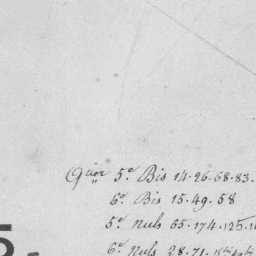 Quōr 5.ᵉ Bis 14.26.68.83.
6.ᵉ Bis 15.49.58
5.ᵉ nuls 65.174.125.1
6.ᵉ Nuls 28.71.
5.